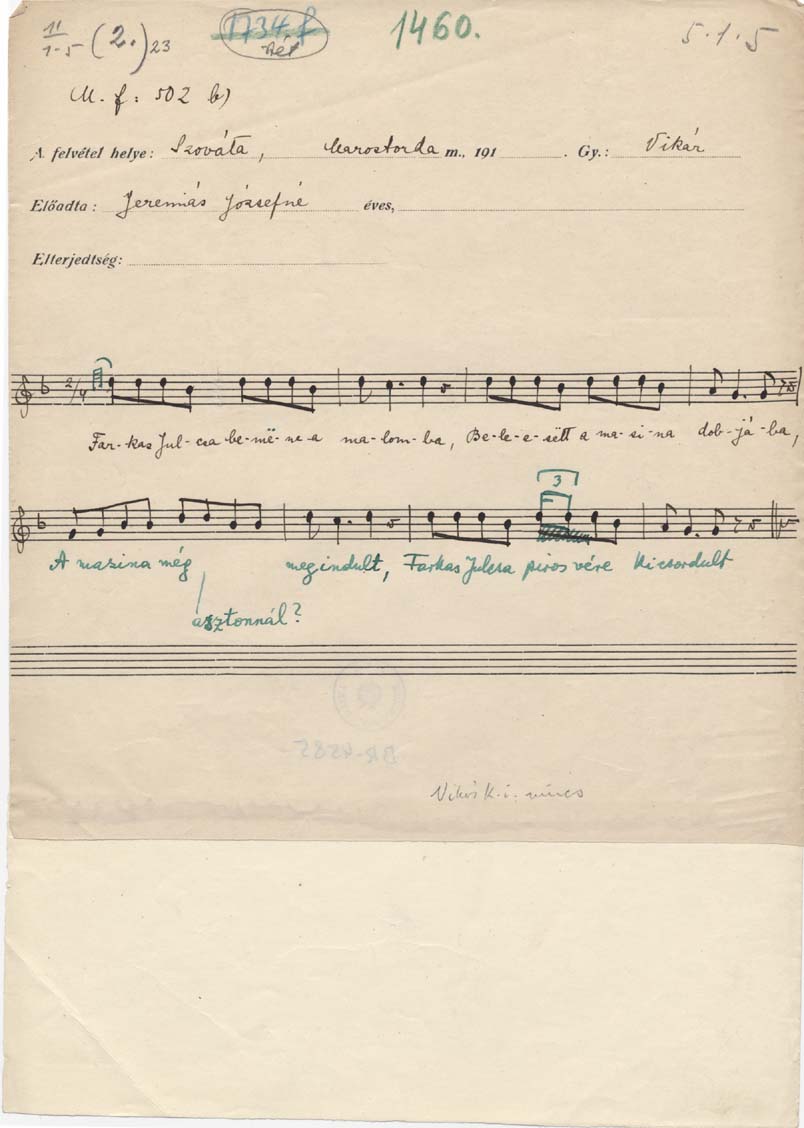 11
1-5 (2.) 23 1734 f 1460. 5.1.5
M. f: 502 b)
A felvétel helye: Szováta, Marostorda m., 191 . Gy.: Vikár
Előadta: Jeremiás Józsefné éves,
Elterjedtség:
2/4
Far-kas Jul-csa be-më-ne-a ma-lom-ba, Be-le-e-sëtt a ma-si-na dob-já-ba,
3
A masina még megindult, Farkas Julcsa piros vére kicsordult
asztonnál?
BR-4585
Vikár K. i. nincs